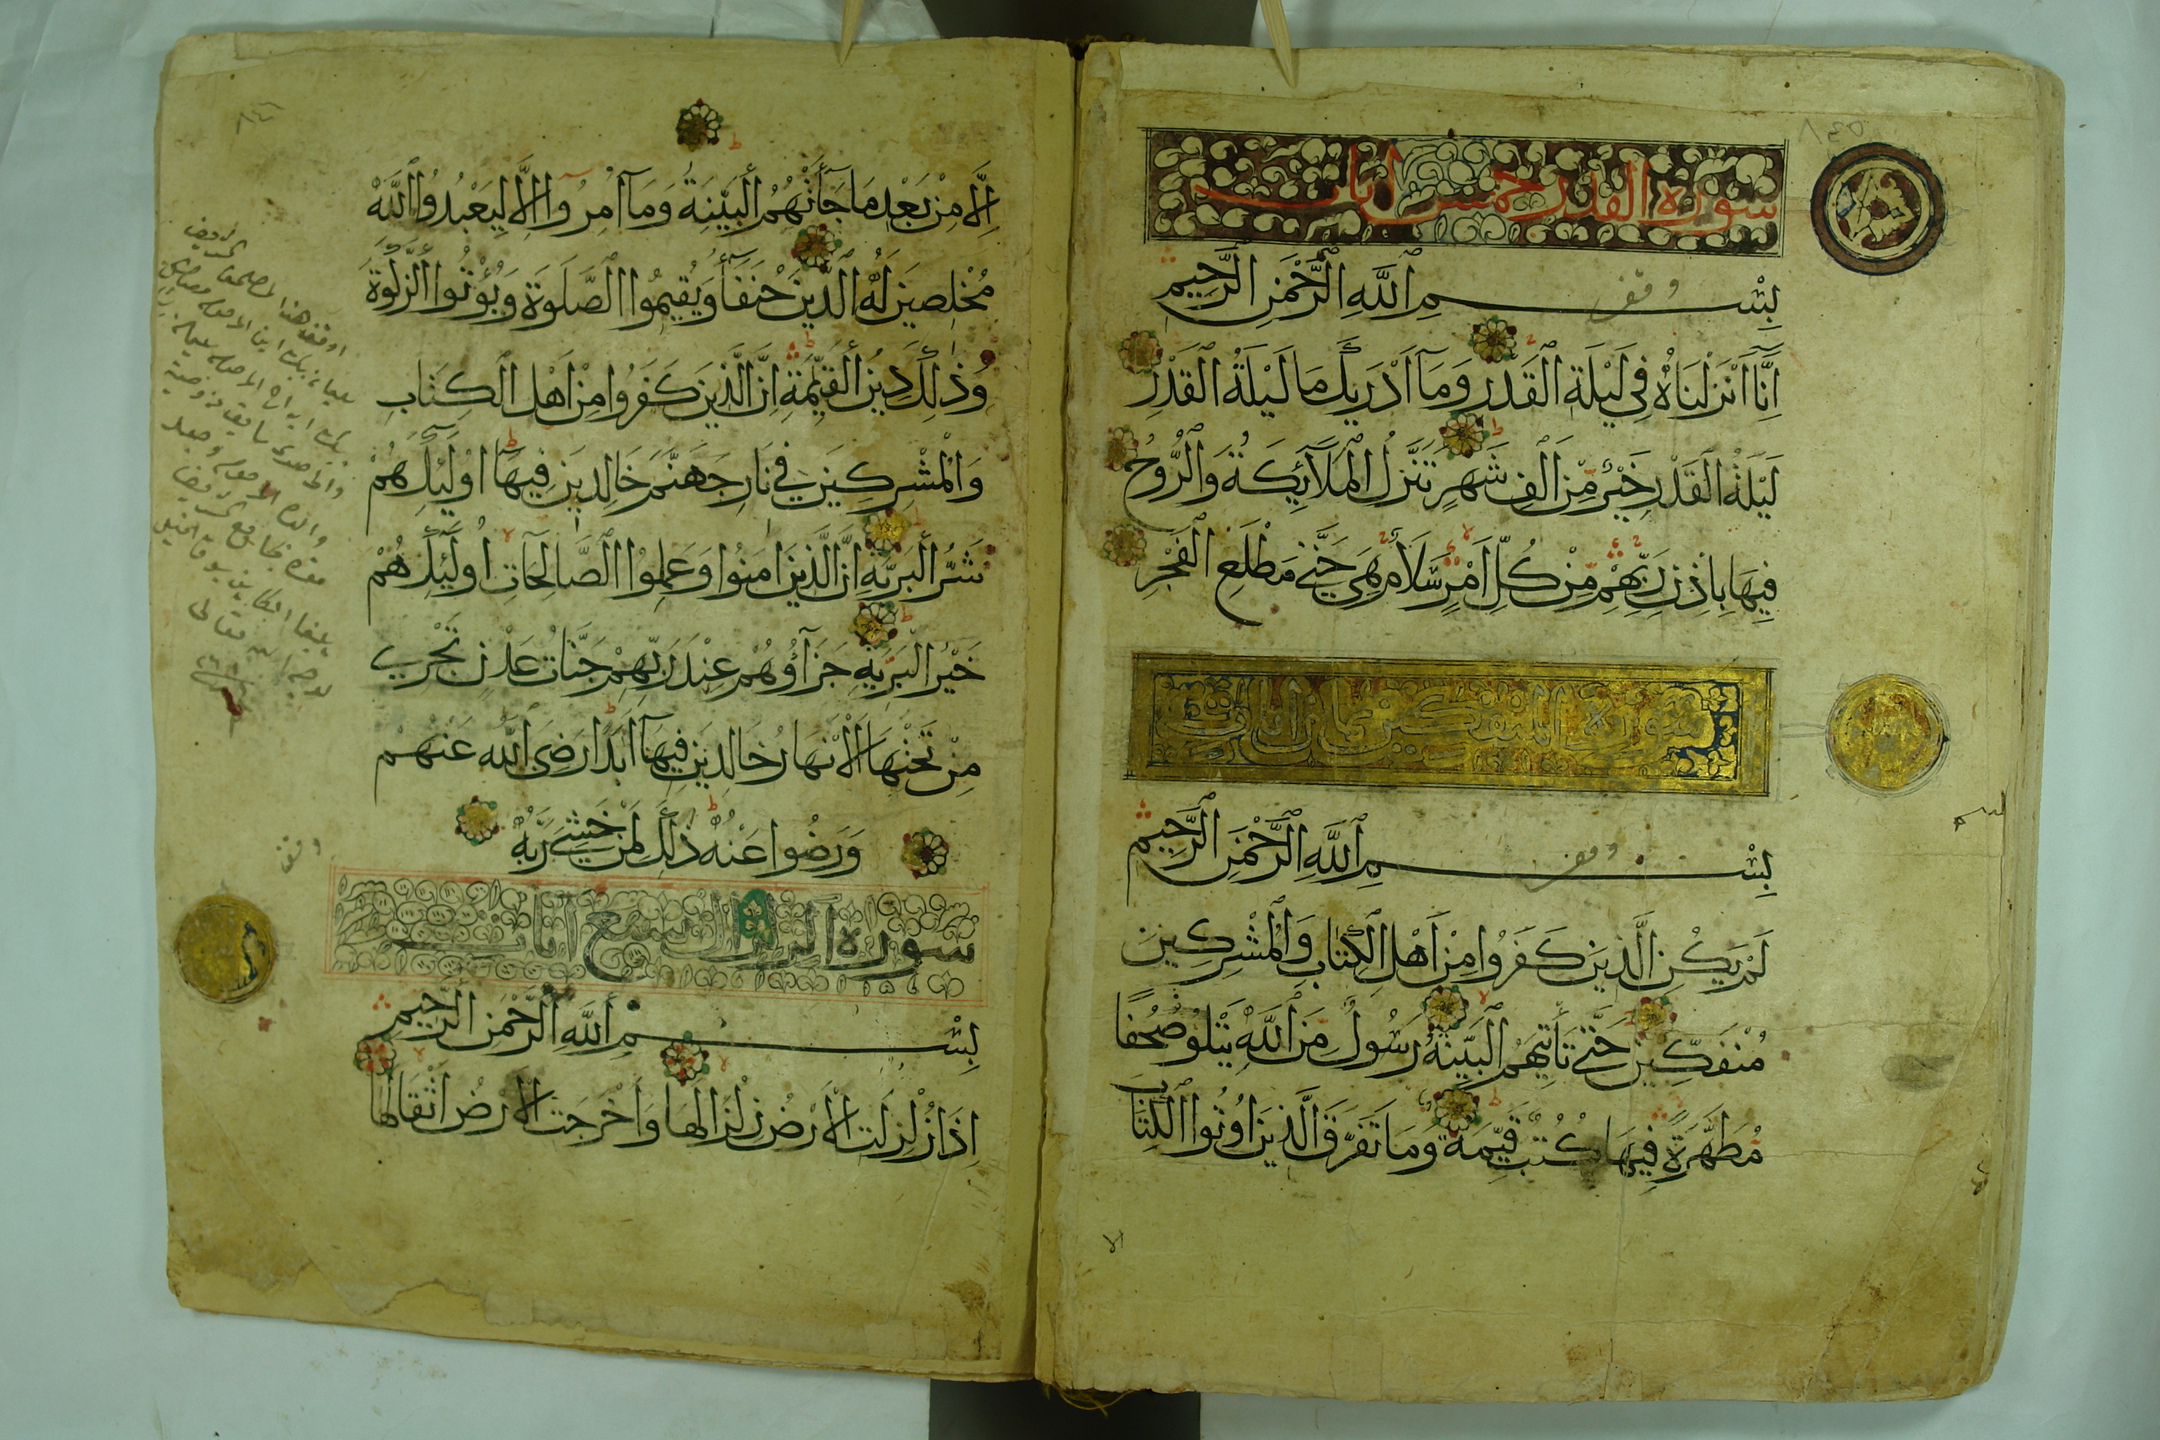 سورة القدر خمس ايات
بِسْمِ اللَّهِ الرَّحْمَٰنِ الرَّحِيمِ
وقف
اِنَّا اَنْزَلْنَاهُ فِي لَيْلَةِ الْقَدْرِ وَمَا اَدْرَيٰكَ مَا لَيْلَةُ الْقَدْرِ
لَيْلَةُ الْقَدْرِ خَيْرٌ مِنْ اَلْفِ شَهْرٍ تَنَزَّلُ الْمَلَآئِكَةُ وَالرُّوحُ
فِيهَا بِاِذْنِ رَبِّهِمْ مِنْ كُلِّ اَمْرٍ سَلَامٌ هِيَ حَتَّى مَطْلَعِ الْفَجْرِ
سورة المنفكين ثمان ايات
بِسْمِ اللَّهِ الرَّحْمَٰنِ الرَّحِيمِ
وقف
لَمْ يَكُنِ الَّذِينَ كَفَرُوا مِنْ اَهْلِ الْكِتَابِ وَالْمُشْرِكِينَ
مُنْفَكِّينَ حَتَّى تَأْتِيَهُمُ الْبَيِّنَةُ رَسُولٌ مِنَ اللَّهِ يَتْلُو صُحُفًا
مُطَهَّرَةً فِيهَا كُتُبٌ قَيِّمَةٌ وَمَا تَفَرَّقَ الَّذِينَ اُوتُوا الْكِتَابَ
الا
اِلَّا مِنْ بَعْدِ مَا جَآءَتْهُمُ الْبَيِّنَةُ وَمَآ اُمِرُوٓا اِلَّا لِيَعْبُدُوا اللَّهَ
مُخْلِصِينَ لَهُ الدِّينَ حُنَفَآءَ وَيُقِيمُوا الصَّلٰوةَ وَيُؤْتُوا الزَّكٰوةَ
وَذٰلِكَ دِينُ الْقَيِّمَةِ اِنَّ الَّذِينَ كَفَرُوا مِنْ اَهْلِ الْكِتَابِ
وَالْمُشْرِكِينَ فِي نَارِ جَهَنَّمَ خَالِدِينَ فِيهَا اُولٰٓئِكَ هُمْ
شَرُّ الْبَرِيَّةِ اِنَّ الَّذِينَ اٰمَنُوا وَعَمِلُوا الصَّالِحَاتِ اُولٰٓئِكَ هُمْ
خَيْرُ الْبَرِيَّةِ جَزَآؤُهُمْ عِنْدَ رَبِّهِمْ جَنَّاتُ عَدْنٍ تَجْرِي
مِنْ تَحْتِهَا الْاَنْهَارُ خَالِدِينَ فِيهَآ اَبَدًا رَضِيَ اللَّهُ عَنْهُمْ
وَرَضُوا عَنْهُ ذٰلِكَ لِمَنْ خَشِيَ رَبَّهُ
وقف
سورة الزلزال تسع ايات
بِسْمِ اللَّهِ الرَّحْمَٰنِ الرَّحِيمِ
اِذَا زُلْزِلَتِ الْاَرْضُ زِلْزَالَهَا وَاَخْرَجَتِ الْاَرْضُ اَثْقَالَهَا